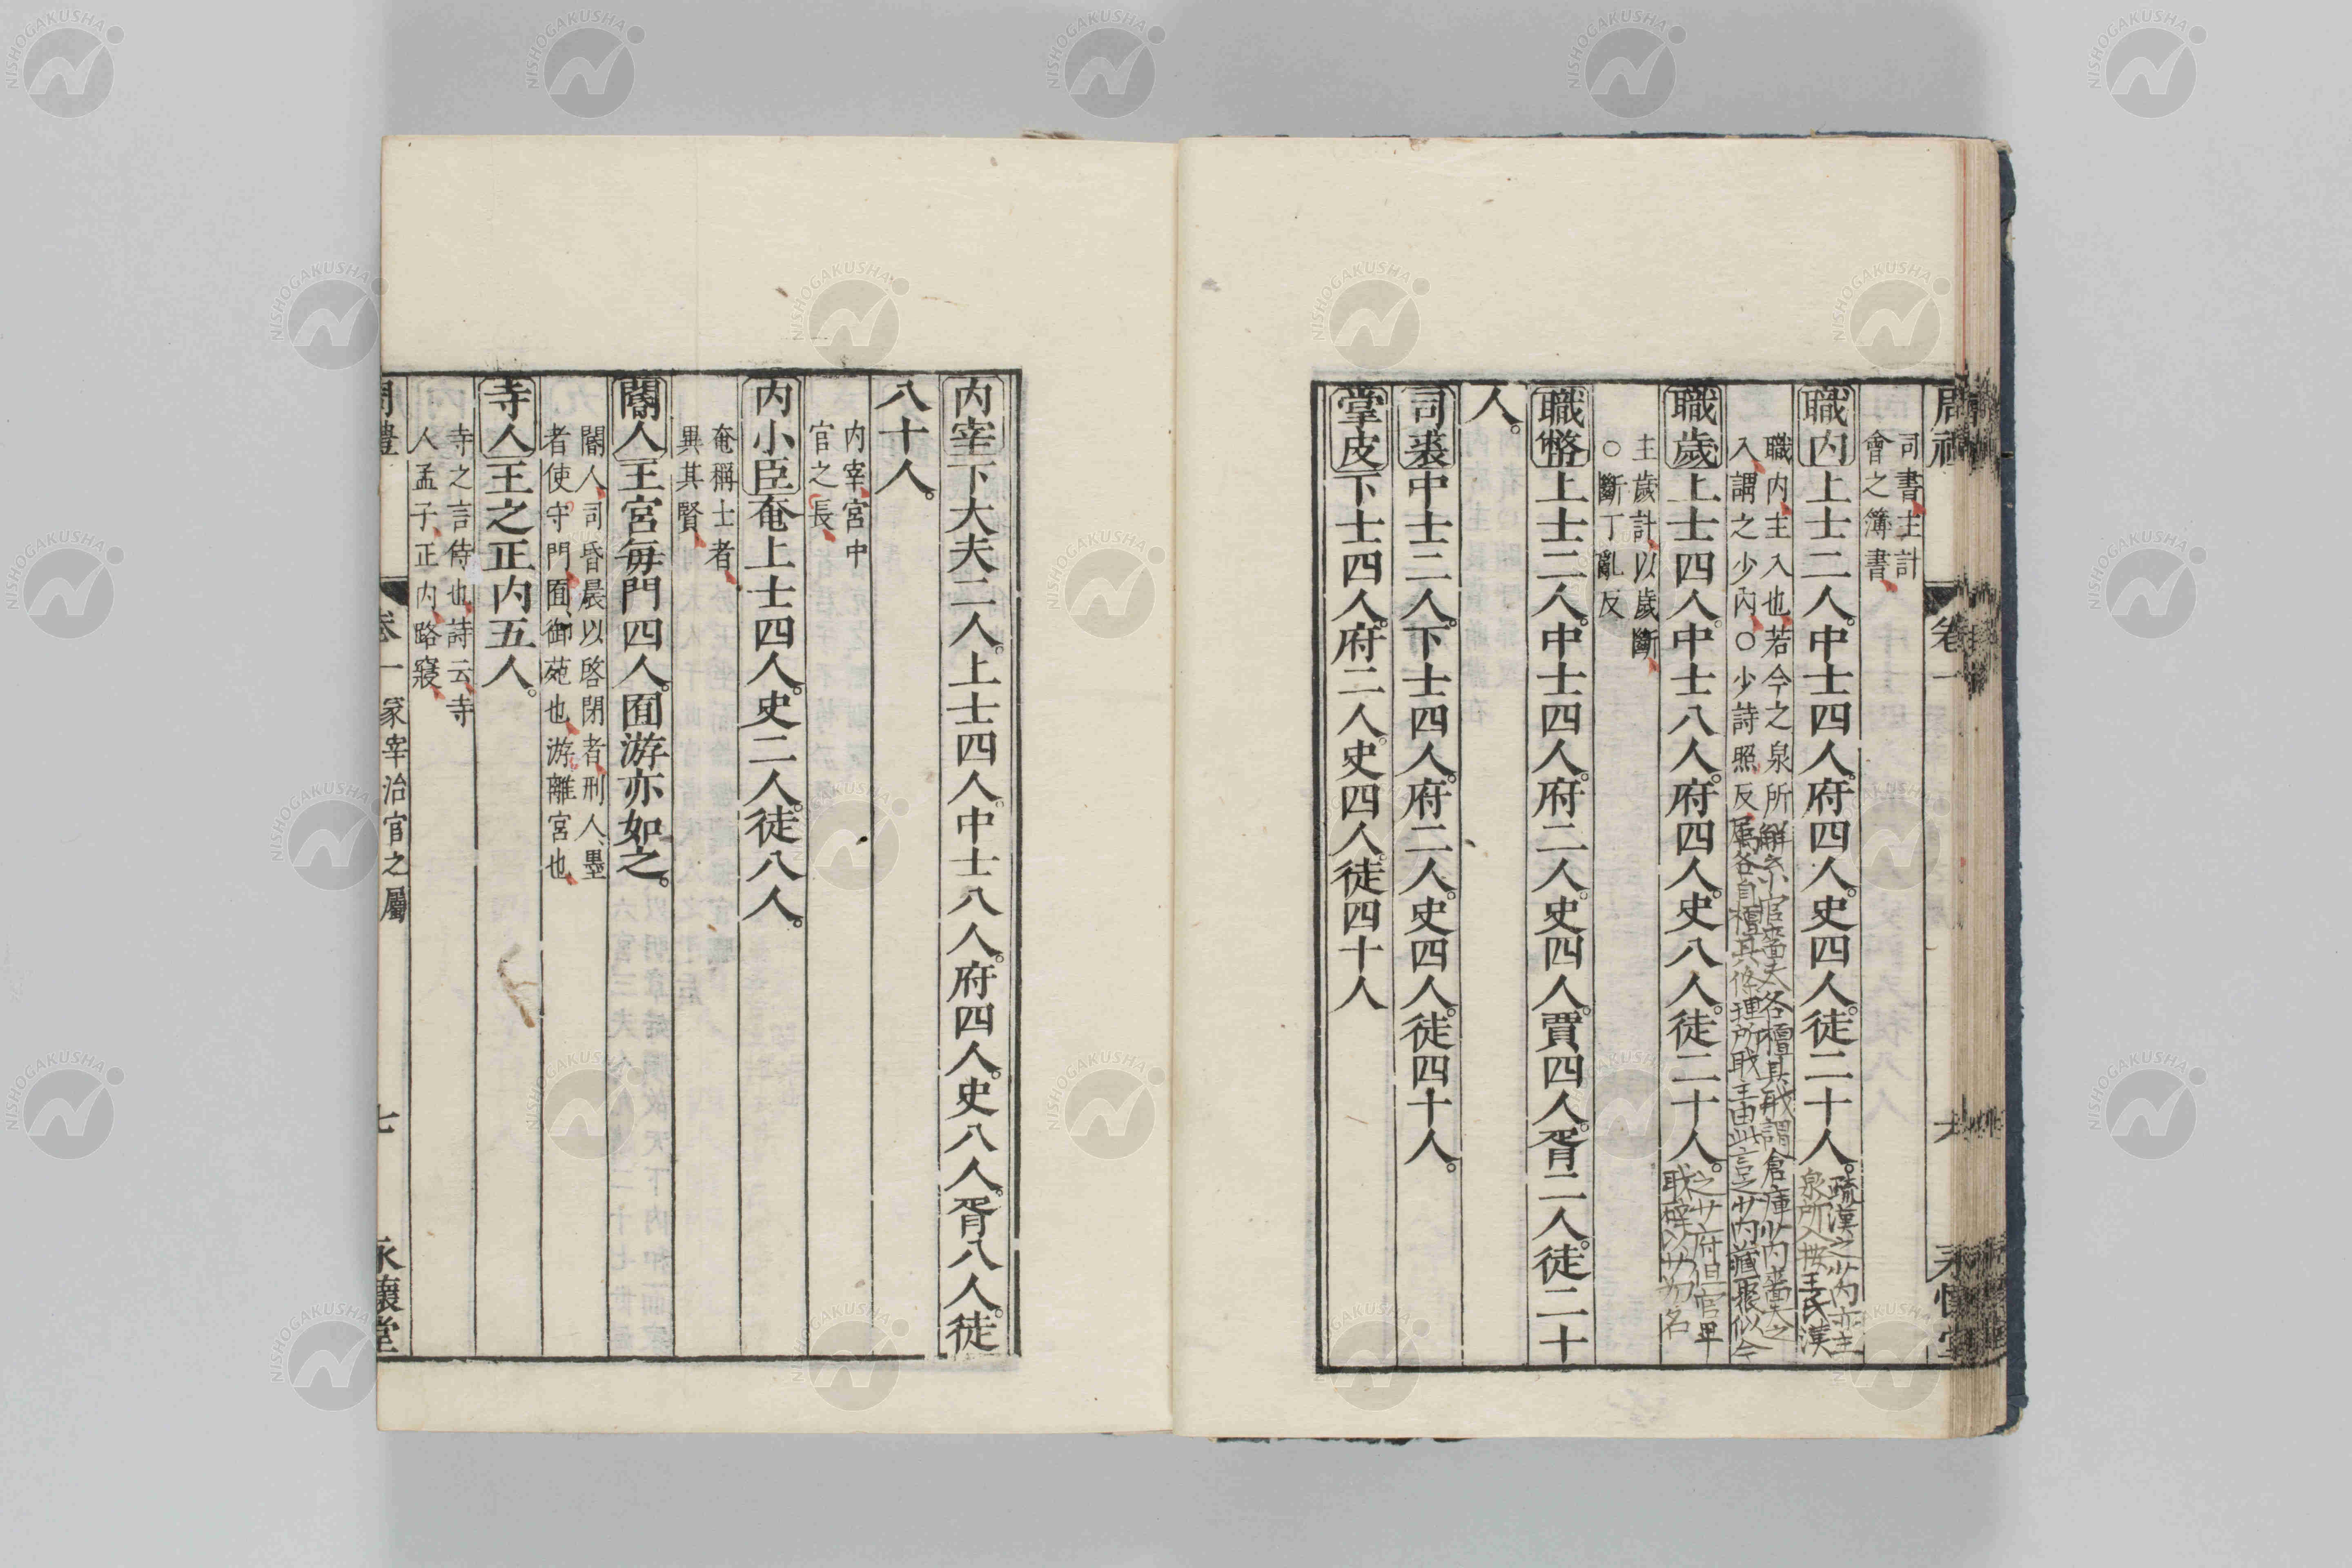 周禮 卷一 六 永懷堂
司書主計
會之簿書
職内上士二人中士四人府四人史四人徒二十人
疏漢之少内亦主
泉所入按王氏漢
職内主入也若今之泉所
入謂之少内○少詩照反
職歲上士四人中士八人府四人史八人徒二十人
主歲計以歲斷
○斷丁亂反
職幣上士二人中士四人府二人史四人賈四人胥二人徒二十
人
司裘中士二人下士四人府二人史四人徒四十人
掌皮下士四人府二人史四人徒四十人
内宰下大夫二人上士四人中士八人府四人史八人胥八人徒
八十人
内宰宮中
官之長
内小臣奄上士四人史二人徒八人
奄稱士者
異其賢
閽人王宮每門四人囿游亦如之
閽人司昏晨以啓閉者刑人墨
者使守門囿御苑也游離宮也
寺人王之正内五人
寺之言侍也詩云寺
人孟子正内路寢
周禮 卷一 冢宰治官之屬 七 永懷堂
NISHOGAKUSHA